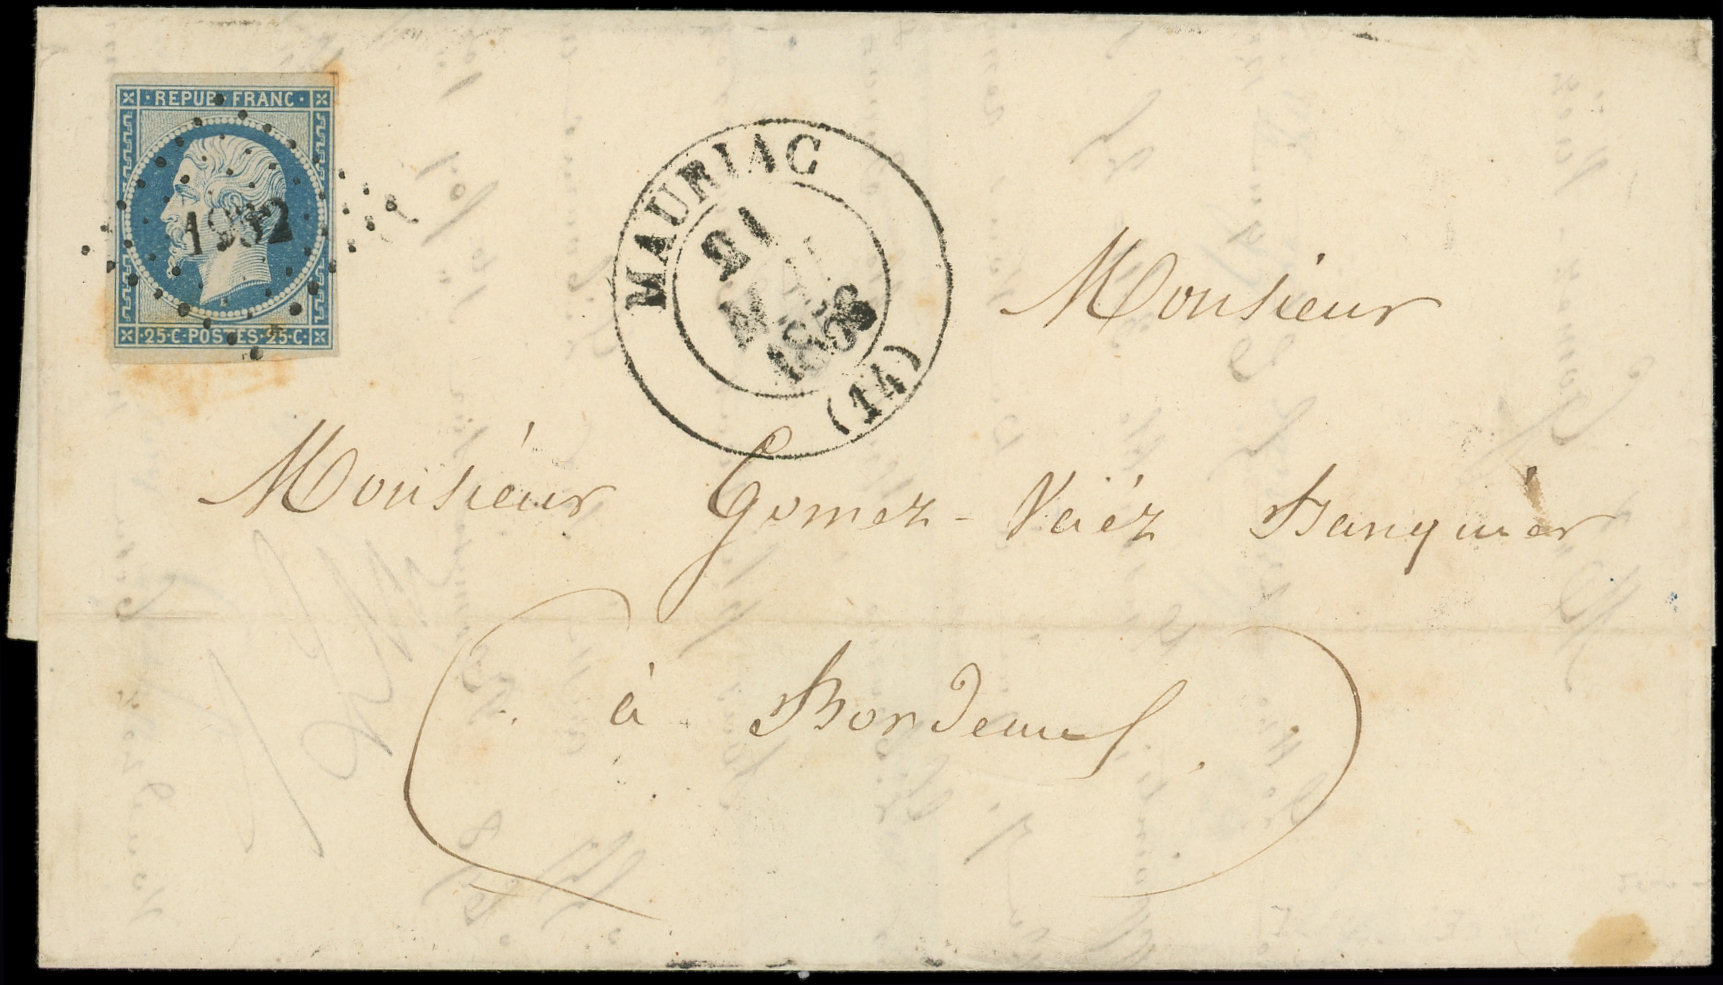 REPUB FRANC
1932
25·C·POSTES·25·C·
MAURIAC
21
MAI
1853
(14)
Monsieur
Monsieur Gomez-Vaëz Banquier
à Bordeaux